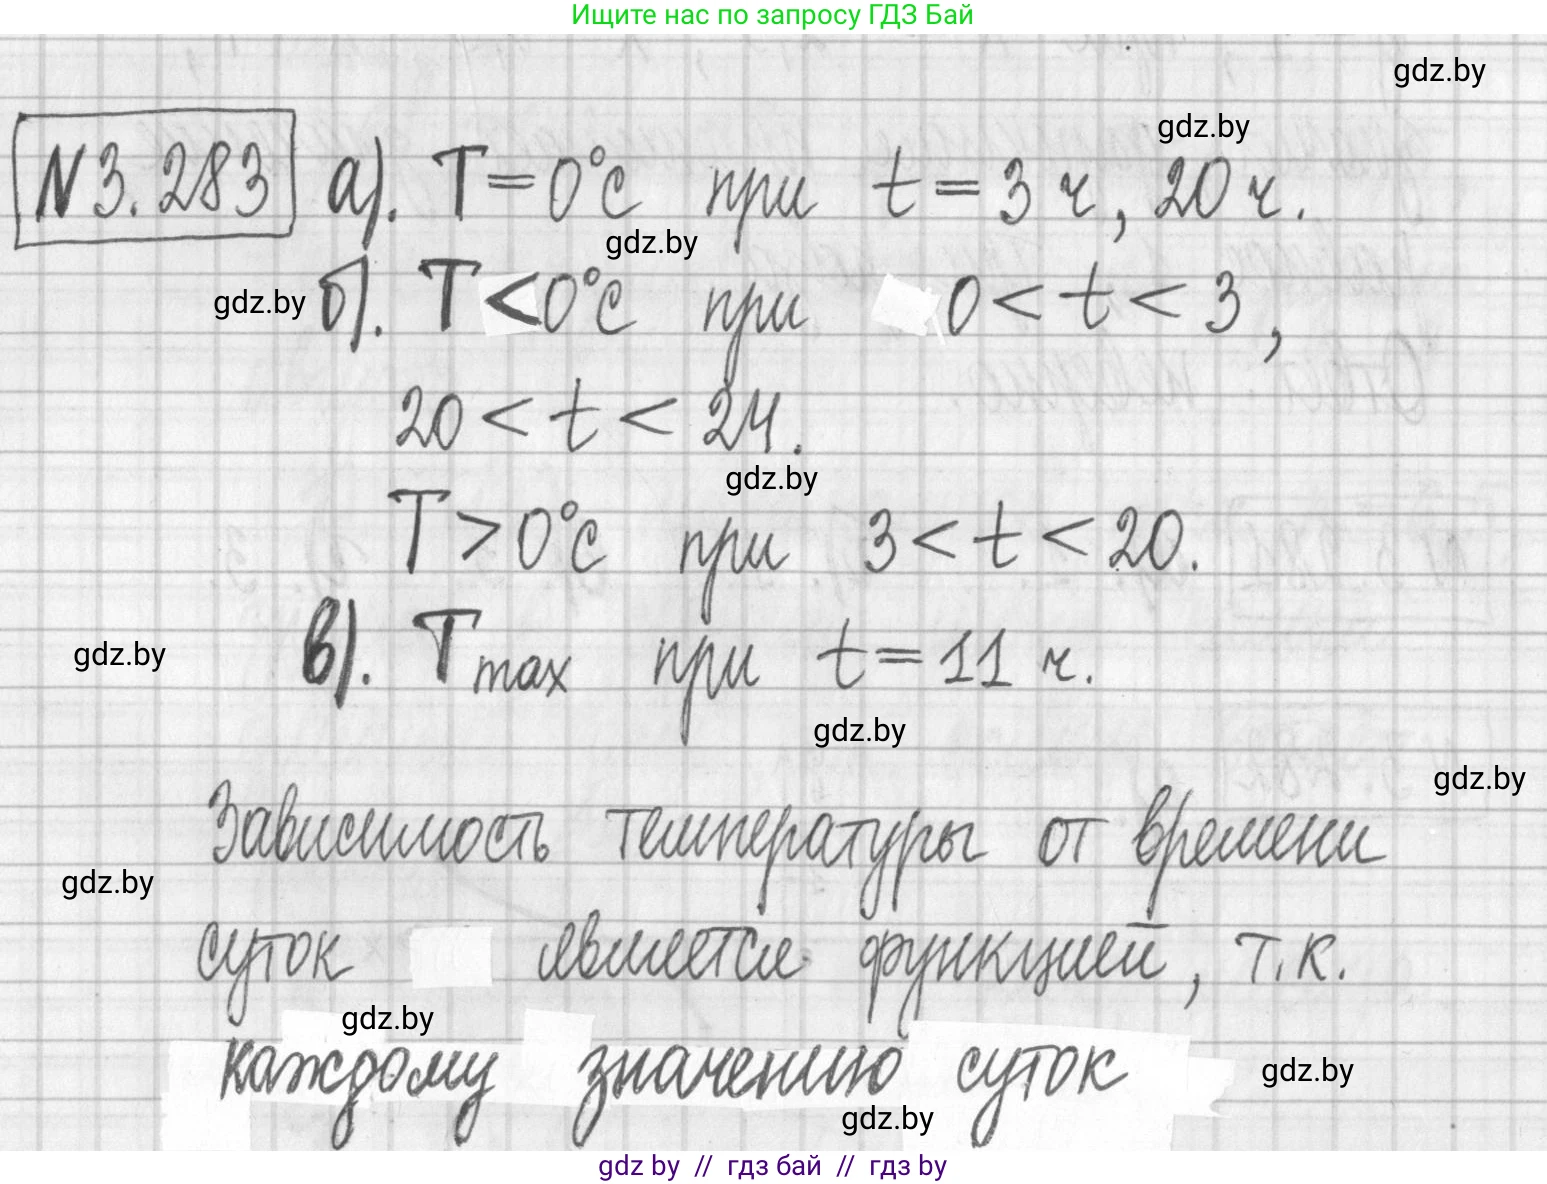 Ищите нас по запросу ГДЗ Бай
gdz.by
gdz.by
N 3.283 а). T=0°C при t=3 ч, 20 ч.
gdz.by
gdz.by
б). T<0°C при 0<t<3,
20<t<24.
gdz.by
T>0°C при 3<t<20.
в). Tmax при t=11 ч.
gdz.by
gdz.by
gdz.by
Зависимость температуры от времени
gdz.by
суток является функцией, т.к.
gdz.by
каждому значению суток
gdz.by
gdz.by
gdz by // гдз бай // гдз by